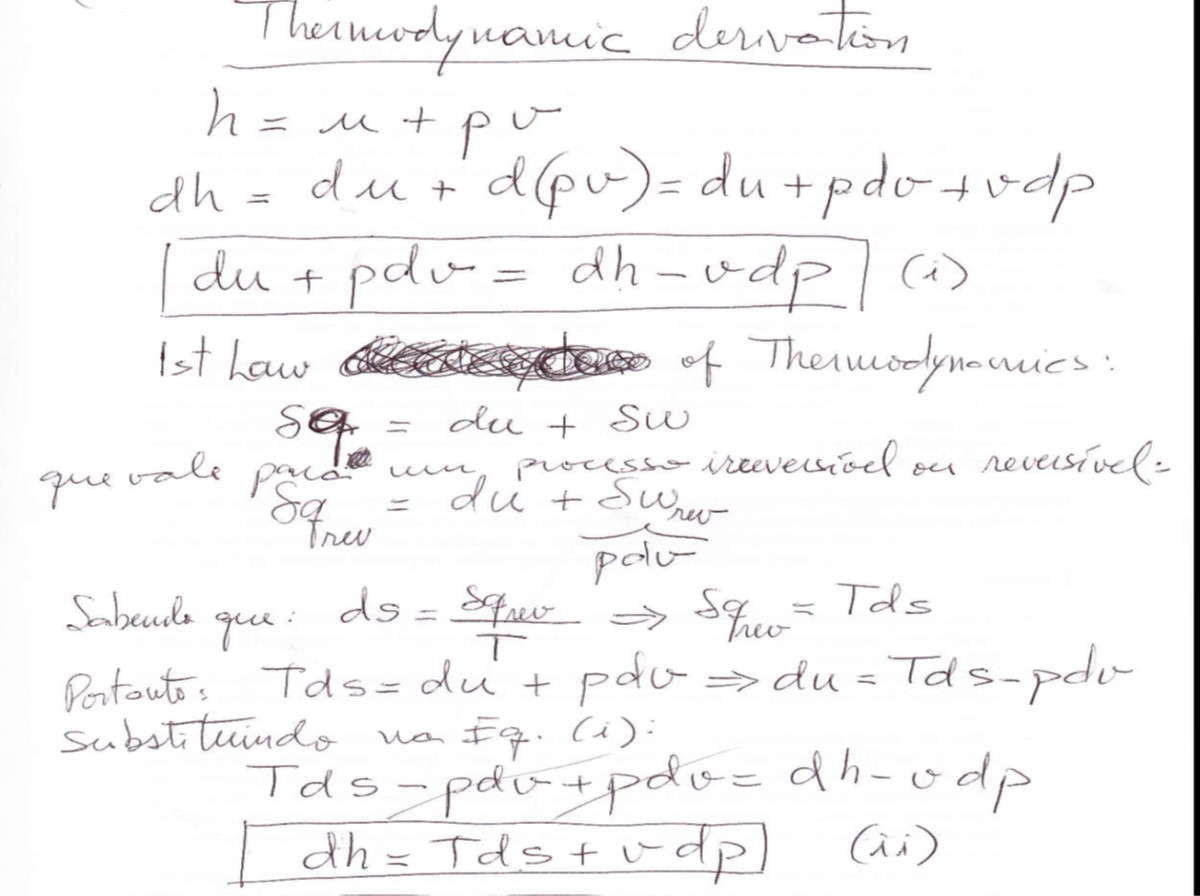 Thermodynamic derivation
h = u + pv
dh = du + d(pv) = du + pdv + vdp
du + pdv = dh - vdp (i)
1st Law of Thermodynamics:
δq = du + δw
que vale para um processo irreversível ou reversível:
δq_rev = du + δw_rev
pdv
Sabendo que: ds = δq_rev / T ⇒ δq_rev = Tds
Portanto: Tds = du + pdv ⇒ du = Tds - pdv
Substituindo na Eq. (i):
Tds - pdv + pdv = dh - vdp
dh = Tds + vdp (ii)